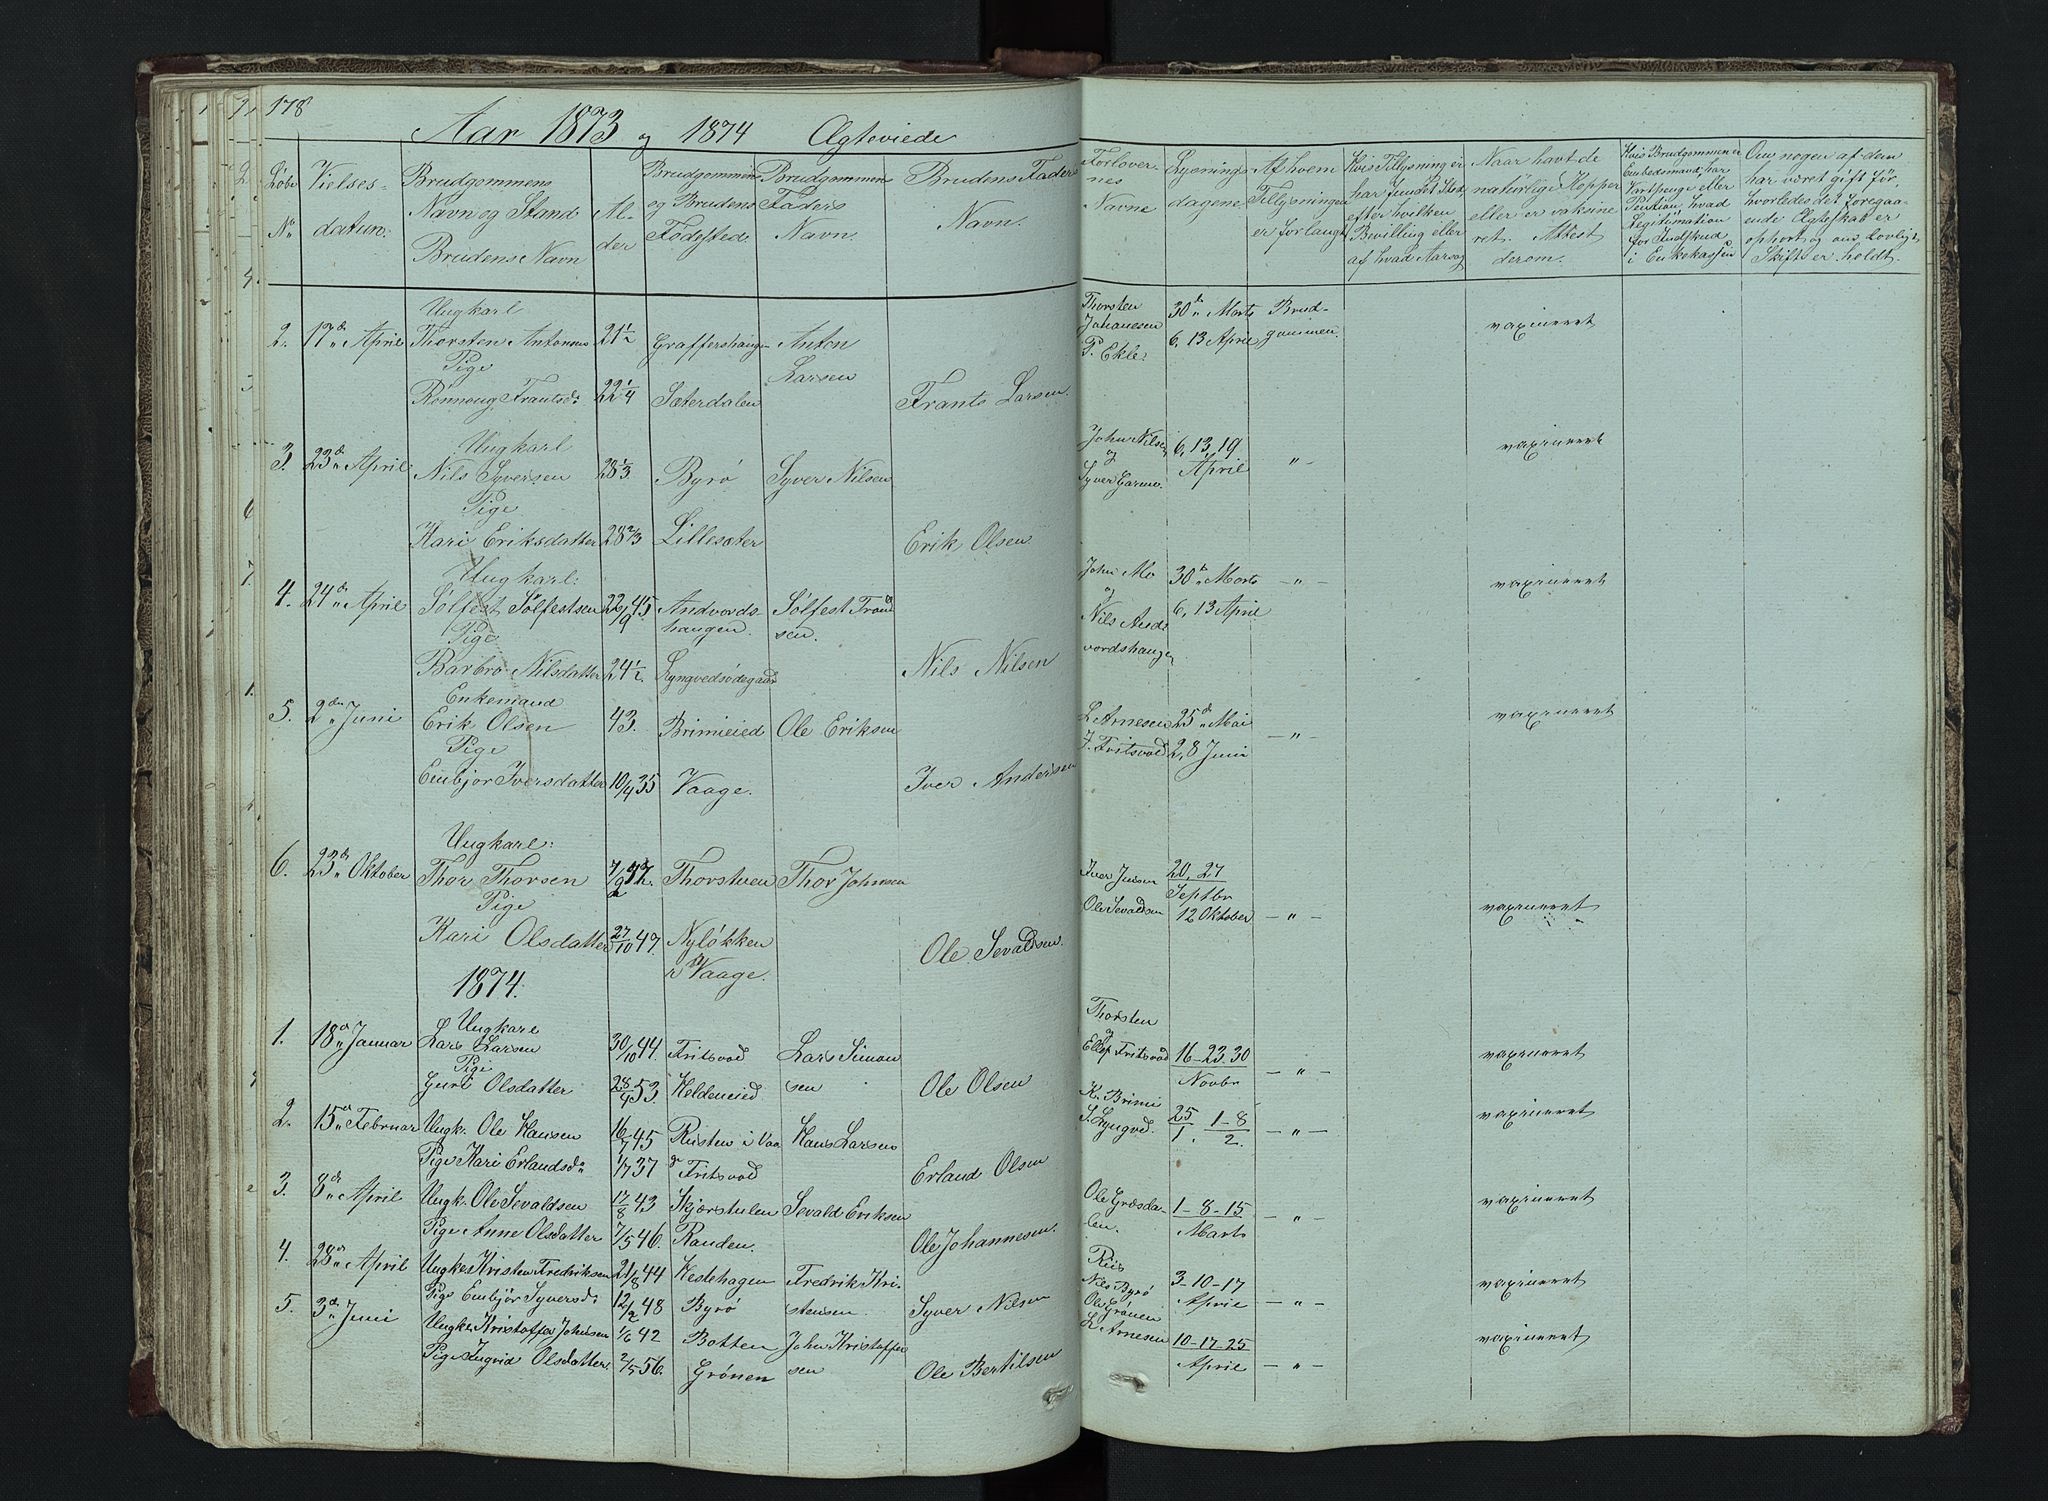 178
Aar 1873 og 1874 Ægteviede
Løbe No
Vielses-datum.
Brudgommens Navn og Stand Brudens Navn
Alder
Brudgommens og Brudens Fødested
Brudgommens Faders Navn.
Brudens Faders Navn.
Forlovernes Navne
Lysningsdagene
Af hvem Tillysningen er forlangt
Hvis Tillysning ei har fundet Sted, efter hvilken Bevilling eller af hvad Aarsag
Naar havt de naturlige Kopper eller er vaksineret. Attest derom.
Hvis Brudgommen er Embedsmand, har Vartpenge eller Pention, hvad Legitimation for Indskud i Enkekassen
Om nogen af dem har været gift før, hvorledes det foregaaende Ægteskab er ophørt og om lovligt Skift er holdt.
2. 17de April
Ungkarl
Thorsten Antonsen 21 1/2 Graffershaugen Anton Larsen
Pige
Rønnoug Frantsd: 22 1/4 Sæterdalen Frants Larsen.
Thorsten Johanesen P. Ekle:
30te Marts 6, 13 April
Brudgommen.
vaxineret
3. 23de April
Ungkarl
Nils Syversen 28 1/3 Byrø Syver Nilsen
Pige
Kari Eriksdatter 28 2/3 Lillesæter Erik Olsen
John Nilsen og Syver Garmo.
6, 13, 19 April
- " -
vaxineret
4. 24de April
Ungkarl:
Sølfest Sølfestsen 22/9 45. Andvordshaugen. Sølfest Trondsen.
Pige
Barbro Nilsdatter 24 1/2. Lyngvedsødegaard Nils Nilsen
John Mo og Nils Andvordshaugen
30te Marts 6, 13 April
- " -
vaxineret
5. 2den Juni
Enkemand
Erik Olsen 43. Brimieied Ole Eriksen
Pige
Embjør Iversdatter 10/4 35 Vaage. Iver Andersen
L. Arnesen J. Fritsvod
25de Mai 2, 8 Juni
- " -
vaxineret
6. 23de Oktober
Ungkarl:
Thor Thorsen Thorstuen Thor Johnsen
Pige
Kari Olsdatter 27/10 47. Nyløkken i Vaage. Ole Sevaldsen.
Iver Jensen Ole Sevaldsen
20, 27 Septbr 12 Oktober
- " -
vaxineret
1874.
1. 18de Januar
Ungkarl
Lars Larsen 30/10 44. Fritsvod Lars Simonsen
Pige
Guri Olsdatter 28/4 53. Heldeneied Ole Olsen
Thorsten og Ellef Fritsvod
16-23. 30 Novbr
- " -
vaxineret
2. 15de Februar
Ungk. Ole Hansen 16/7 45 Rusten i Vaage Hans Larsen
Pige Kari Erlandsd: 1/7 37 Fritsvod Erland Olsen
K. Brimi S. Lyngved.
25/1. 1-8/2.
- " -
vaxineret
3. 8de April
Ungk. Ole Sevaldsen 17/8 43 Skjørstulen Sevald Eriksen
Pige Anne Olsdatter 7/5 46. Randen. Ole Johannesen.
Ole Græsdalen.
1-8-15 Marts
- " -
vaxineret
4. 28de April
Ungk. Kristen Fredriksen 21/8 44 Hestehagen Fredrik Kristensen.
Pige Embjør Syversd: 12/2 48 Byrø Syver Nilsen
Riis Nils Byrø
3-10-17 April
- " -
vaxineret
5. 3de Juni
Ungk. Kristoffer Johnsen 1/6 42 Botten John Kristoffersen
Pige Ingrid Olsdatter 2/5 56. Grønen Ole Bertilsen
Ole Grønen L. Arnesen
10-17-25 April
- " -
vaxineret